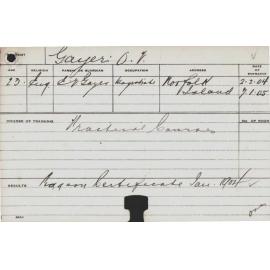 Gayer: O. V.
AGE RELIGION PARENT OR GUARDIAN OCCUPATION ADDRESS DATE OF ENTRANCE
23. Eng E V Gayer Magistrate Norfolk Island 2-2-04
7.1.05
COURSE OF TRAINING No. OF ROOM
Practical Course
RESULTS Certificate Jan. 1904